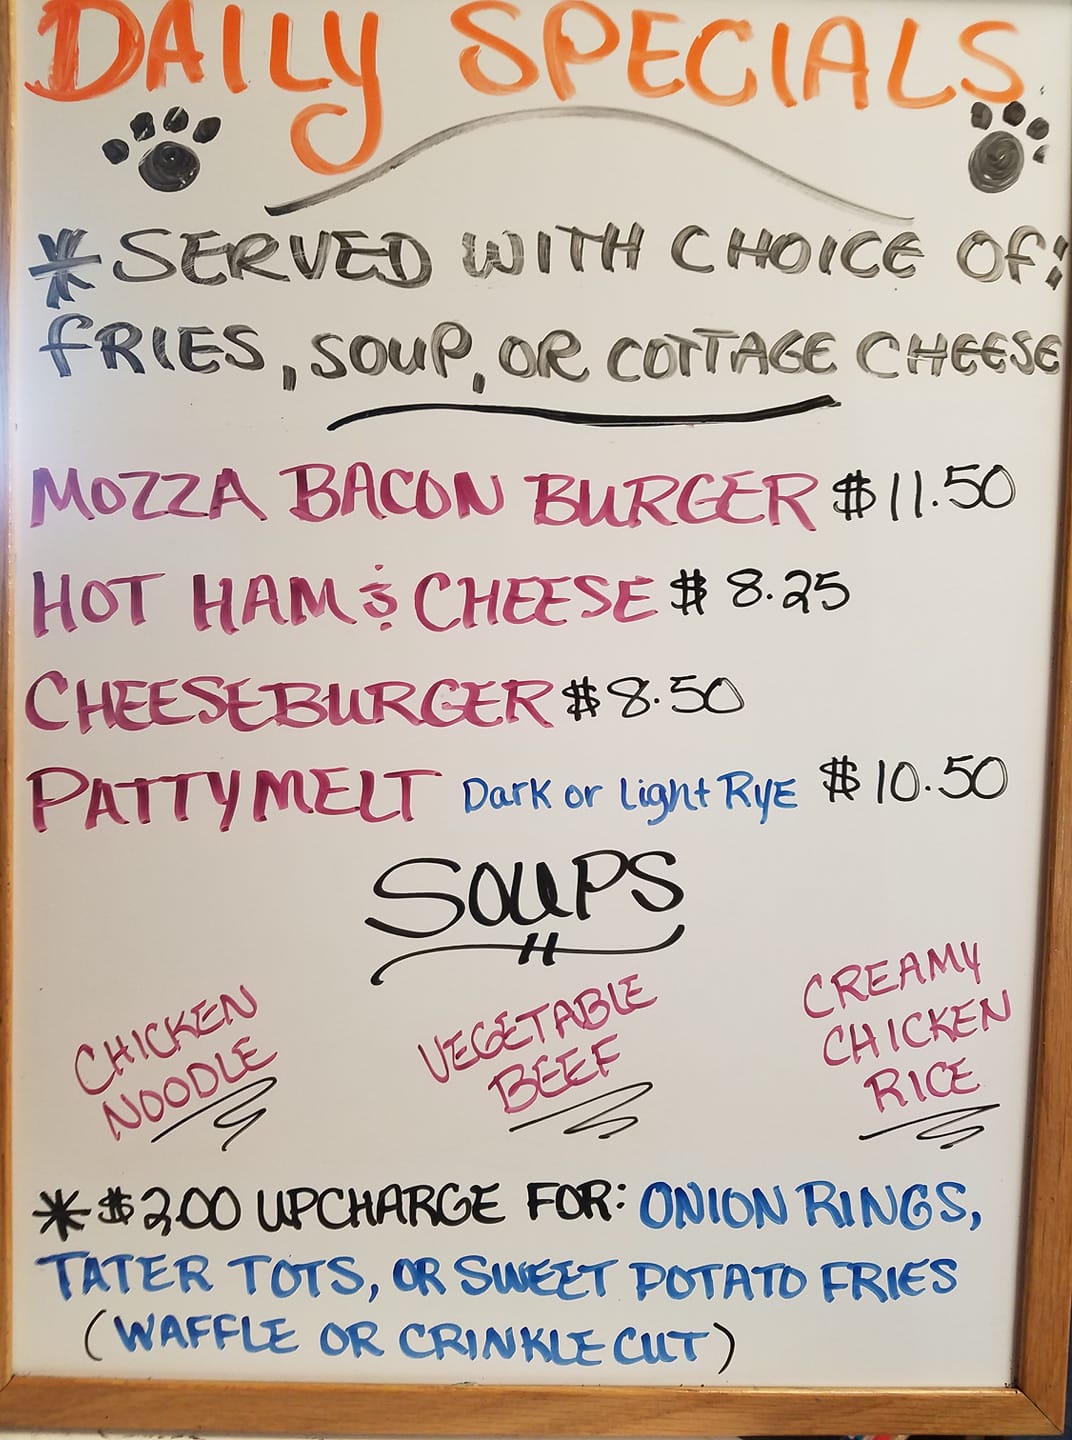 DAILY SPECIALS
* SERVED WITH CHOICE OF:
FRIES, SOUP, OR COTTAGE CHEESE
MOZZA BACON BURGER $11.50
HOT HAM & CHEESE $8.25
CHEESEBURGER $8.50
PATTYMELT Dark or Light RYE $10.50
SOUPS
CHICKEN
NOODLE
VEGETABLE
BEEF
CREAMY
CHICKEN
RICE
* $2.00 UPCHARGE FOR: ONION RINGS,
TATER TOTS, OR SWEET POTATO FRIES
(WAFFLE OR CRINKLE CUT)